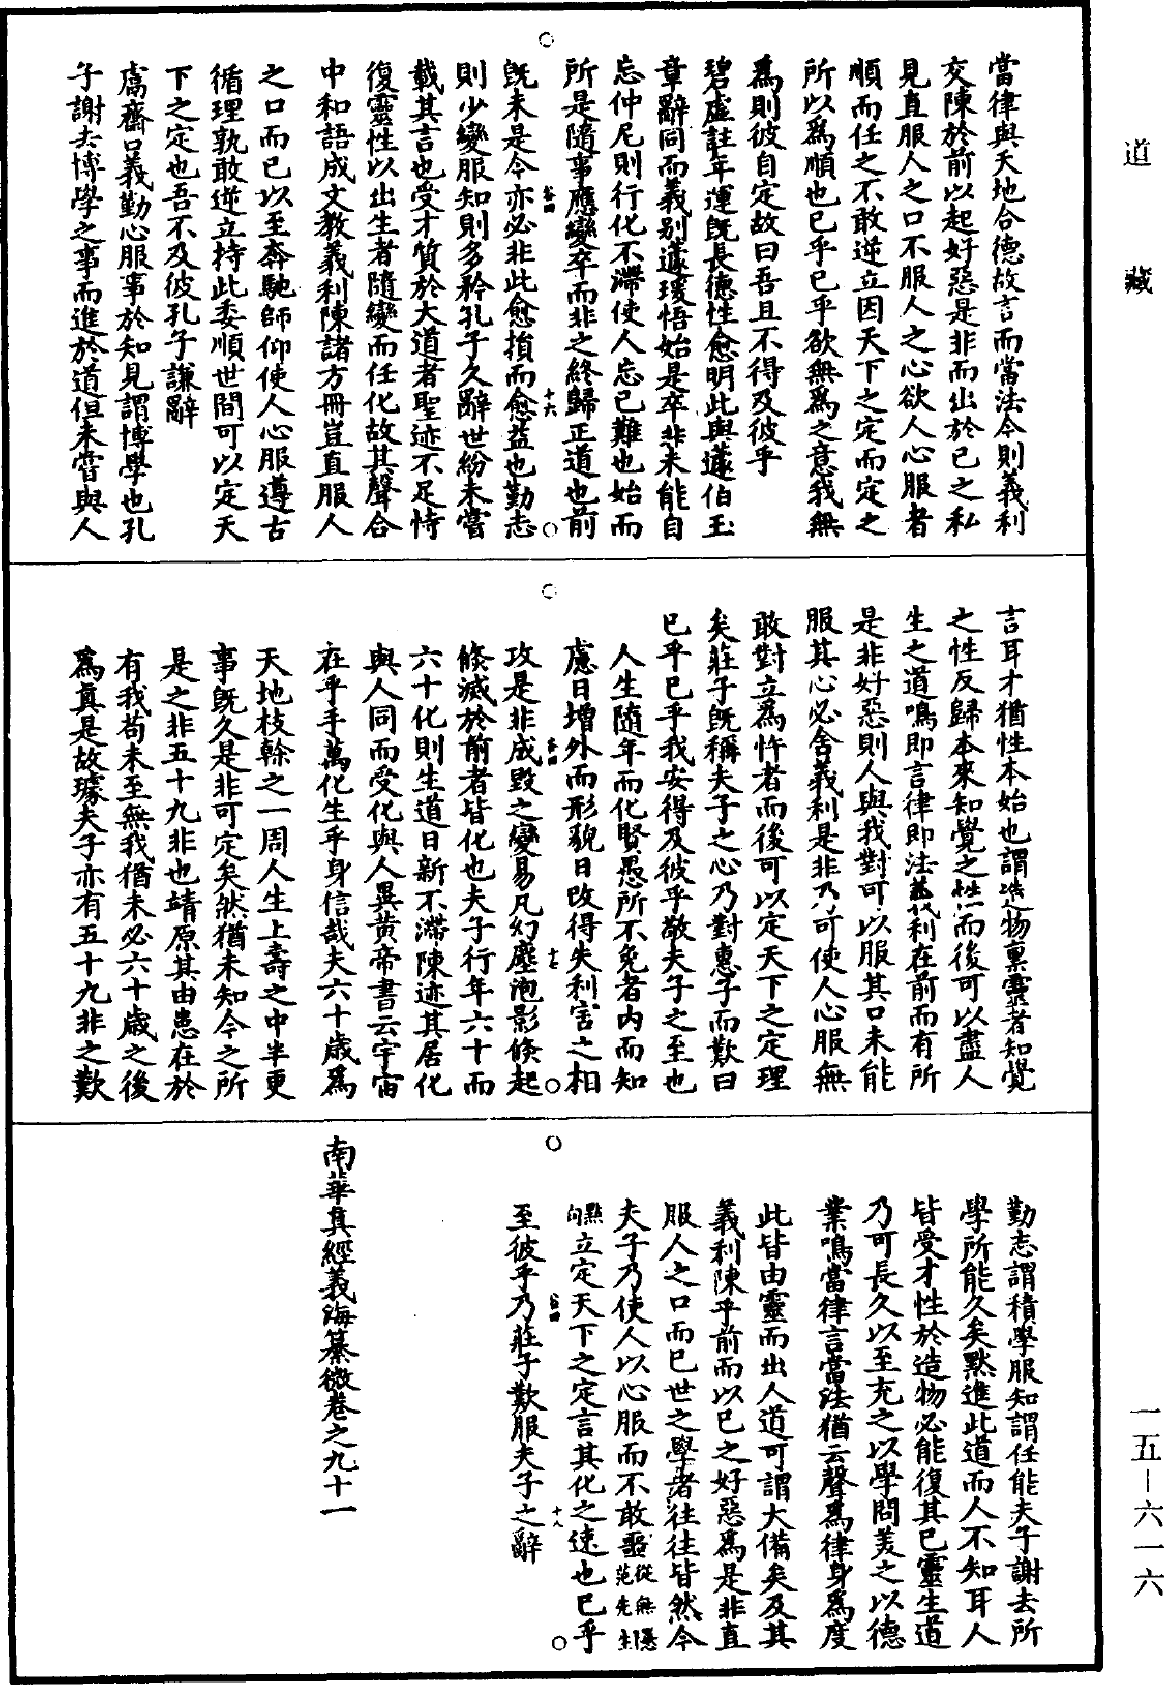 道藏
當律與天地合德故言而當法令則義利
交陳於前以起好惡是非而出於已之私
見直服人之口不服人之心欲人心服者
順而任之不敢逆立因天下之定而定之
所以爲順也已乎已乎欲無爲之意我無
爲則彼自定故曰吾且不得及彼乎
碧虛註年運旣長德性愈明此與蘧伯玉
章辭同而義别蘧瑗悟始是卒非未能自
忘仲尼則行化不滯使人忘已難也始而
所是隨事應變卒而非之終歸正道也前
旣未是今亦必非此愈損而愈益也勤志
則少變服知則多矜孔子久辭世紛未嘗
載其言也受才質於大道者聖迹不足恃
復靈性以出生者隨變而任化故其聲合
中和語成文教義利陳諸方冊豈直服人
之口而已以至奔馳師仰使人心服遵古
循理孰敢逆立持此委順世間可以定天
下之定也吾不及彼孔子謙辭
鬳齋口義勤心服事於知見謂博學也孔
子謝去博學之事而進於道但未嘗與人
言耳才猶性本始也謂造物稟靈者知覺
之性反歸本來知覺之性而後可以盡人
生之道鳴即言律即法義利在前而有所
是非好惡則人與我對可以服其口未能
服其心必舍義利是非乃可使人心服無
敢對立爲忤者而後可以定天下之定理
矣莊子旣稱夫子之心乃對惠子而歎曰
已乎已乎我安得及彼乎敬夫子之至也
人生隨年而化賢愚所不免者内而知
慮日增外而形貌日改得失利害之相
攻是非成毀之變易凡幻塵泡影倏起
倏滅於前者皆化也夫子行年六十而
六十化則生道日新不滯陳迹其居化
與人同而受化與人異黄帝書云宇宙
在乎手萬化生乎身信哉夫六十歲爲
天地枝榦之一周人生上壽之中半更
事旣久是非可定矣然猶未知今之所
是之非五十九非也靖原其由患在於
有我苟未至無我猶未必六十歲之後
爲眞是故據夫子亦有五十九非之歎
勤志謂積學服知謂任能夫子謝去所
學所能久矣黙進此道而人不知耳人
皆受才性於造物必能復其已靈生道
乃可長久以至充之以學問美之以德
業鳴當律言當法猶云聲爲律身爲度
此皆由靈而出人道可謂大備矣及其
義利陳乎前而以已之好惡爲是非直
服人之口而已世之學者往往皆然今
夫子乃使人以心服而不敢噩從無隱范先生
點句立定天下之定言其化之速也已乎
至彼乎乃莊子歎服夫子之辭
南華真經義海纂微卷之九十一
一五—六一六